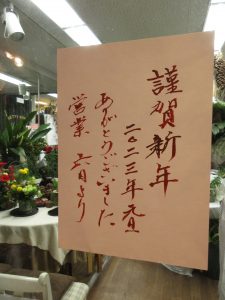 謹賀新年
二〇二三年元旦
ありがとうございました
営業 六日より